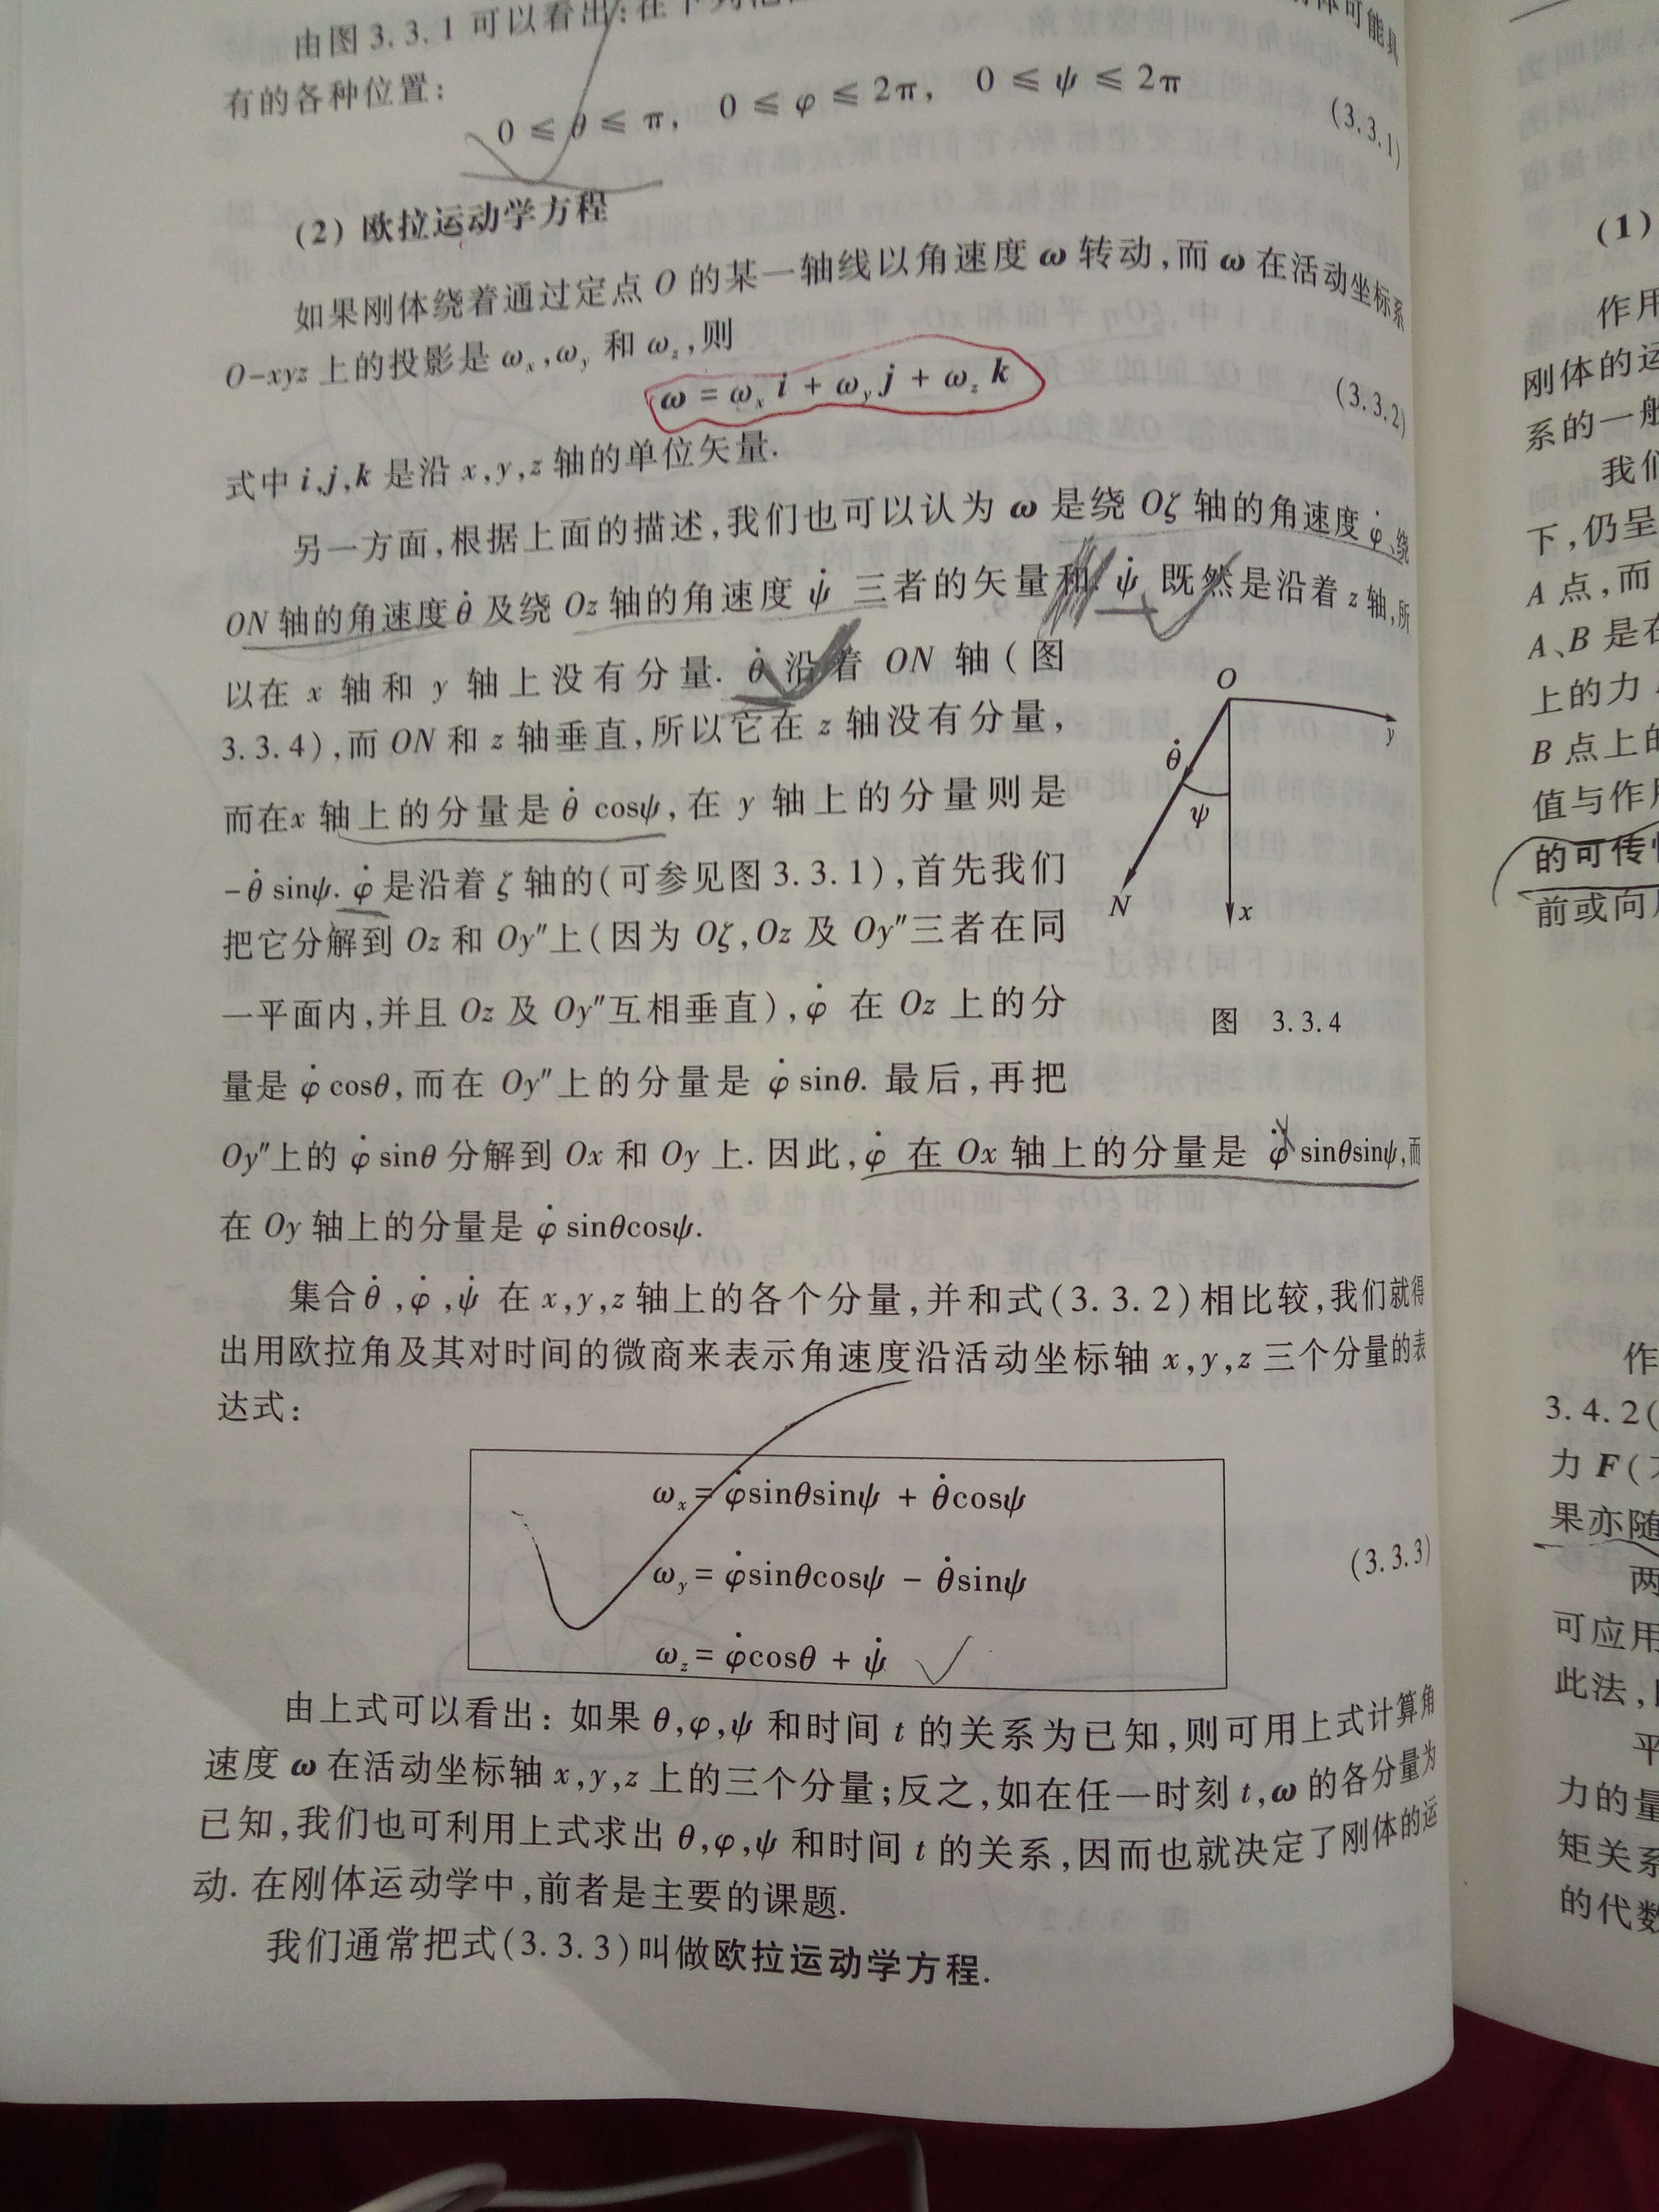 由图 3.3.1 可以看出:在下列
可能具
有的各种位置:
0 ≤ θ ≤ π, 0 ≤ φ ≤ 2π, 0 ≤ ψ ≤ 2π (3.3.1)
(2) 欧拉运动学方程
如果刚体绕着通过定点 O 的某一轴线以角速度 ω 转动,而 ω 在活动坐标系
O-xyz 上的投影是 ωx,ωy 和 ωz,则
ω = ωx i + ωy j + ωz k (3.3.2)
式中 i,j,k 是沿 x,y,z 轴的单位矢量.
另一方面,根据上面的描述,我们也可以认为 ω 是绕 Oζ 轴的角速度 φ̇、绕
ON 轴的角速度 θ̇ 及绕 Oz 轴的角速度 ψ̇ 三者的矢量和. ψ̇ 既然是沿着 z 轴,所
以在 x 轴和 y 轴上没有分量. θ̇ 沿着 ON 轴(图
3.3.4),而 ON 和 z 轴垂直,所以它在 z 轴没有分量,
而在x 轴上的分量是 θ̇ cosψ,在 y 轴上的分量则是
-θ̇ sinψ. φ̇ 是沿着 ζ 轴的(可参见图 3.3.1),首先我们
把它分解到 Oz 和 Oy″上(因为 Oζ,Oz 及 Oy″三者在同
一平面内,并且 Oz 及 Oy″互相垂直),φ̇ 在 Oz 上的分
量是 φ̇ cosθ,而在 Oy″上的分量是 φ̇ sinθ. 最后,再把
Oy″上的 φ̇ sinθ 分解到 Ox 和 Oy 上. 因此,φ̇ 在 Ox 轴上的分量是 φ̇ sinθsinψ,而
在 Oy 轴上的分量是 φ̇ sinθcosψ.
O
y
θ̇
ψ
N
x
图 3.3.4
集合 θ̇,φ̇,ψ̇ 在 x,y,z 轴上的各个分量,并和式(3.3.2)相比较,我们就得
出用欧拉角及其对时间的微商来表示角速度沿活动坐标轴 x,y,z 三个分量的表
达式:
ωx = φ̇sinθsinψ + θ̇cosψ
ωy = φ̇sinθcosψ - θ̇sinψ (3.3.3)
ωz = φ̇cosθ + ψ̇
由上式可以看出: 如果 θ,φ,ψ 和时间 t 的关系为已知,则可用上式计算角
速度 ω 在活动坐标轴 x,y,z 上的三个分量;反之,如在任一时刻 t,ω 的各分量为
已知,我们也可利用上式求出 θ,φ,ψ 和时间 t 的关系,因而也就决定了刚体的运
动. 在刚体运动学中,前者是主要的课题.
我们通常把式(3.3.3)叫做欧拉运动学方程.
(1)
作用
刚体的运
系的一般
我们
下,仍呈
A 点,而
A、B 是在
上的力
B 点上的
值与作用
的可传性
前或向
作
3.4.2(
力 F(
果亦随
两
可应用
此法,
平
力的量
矩关系
的代数